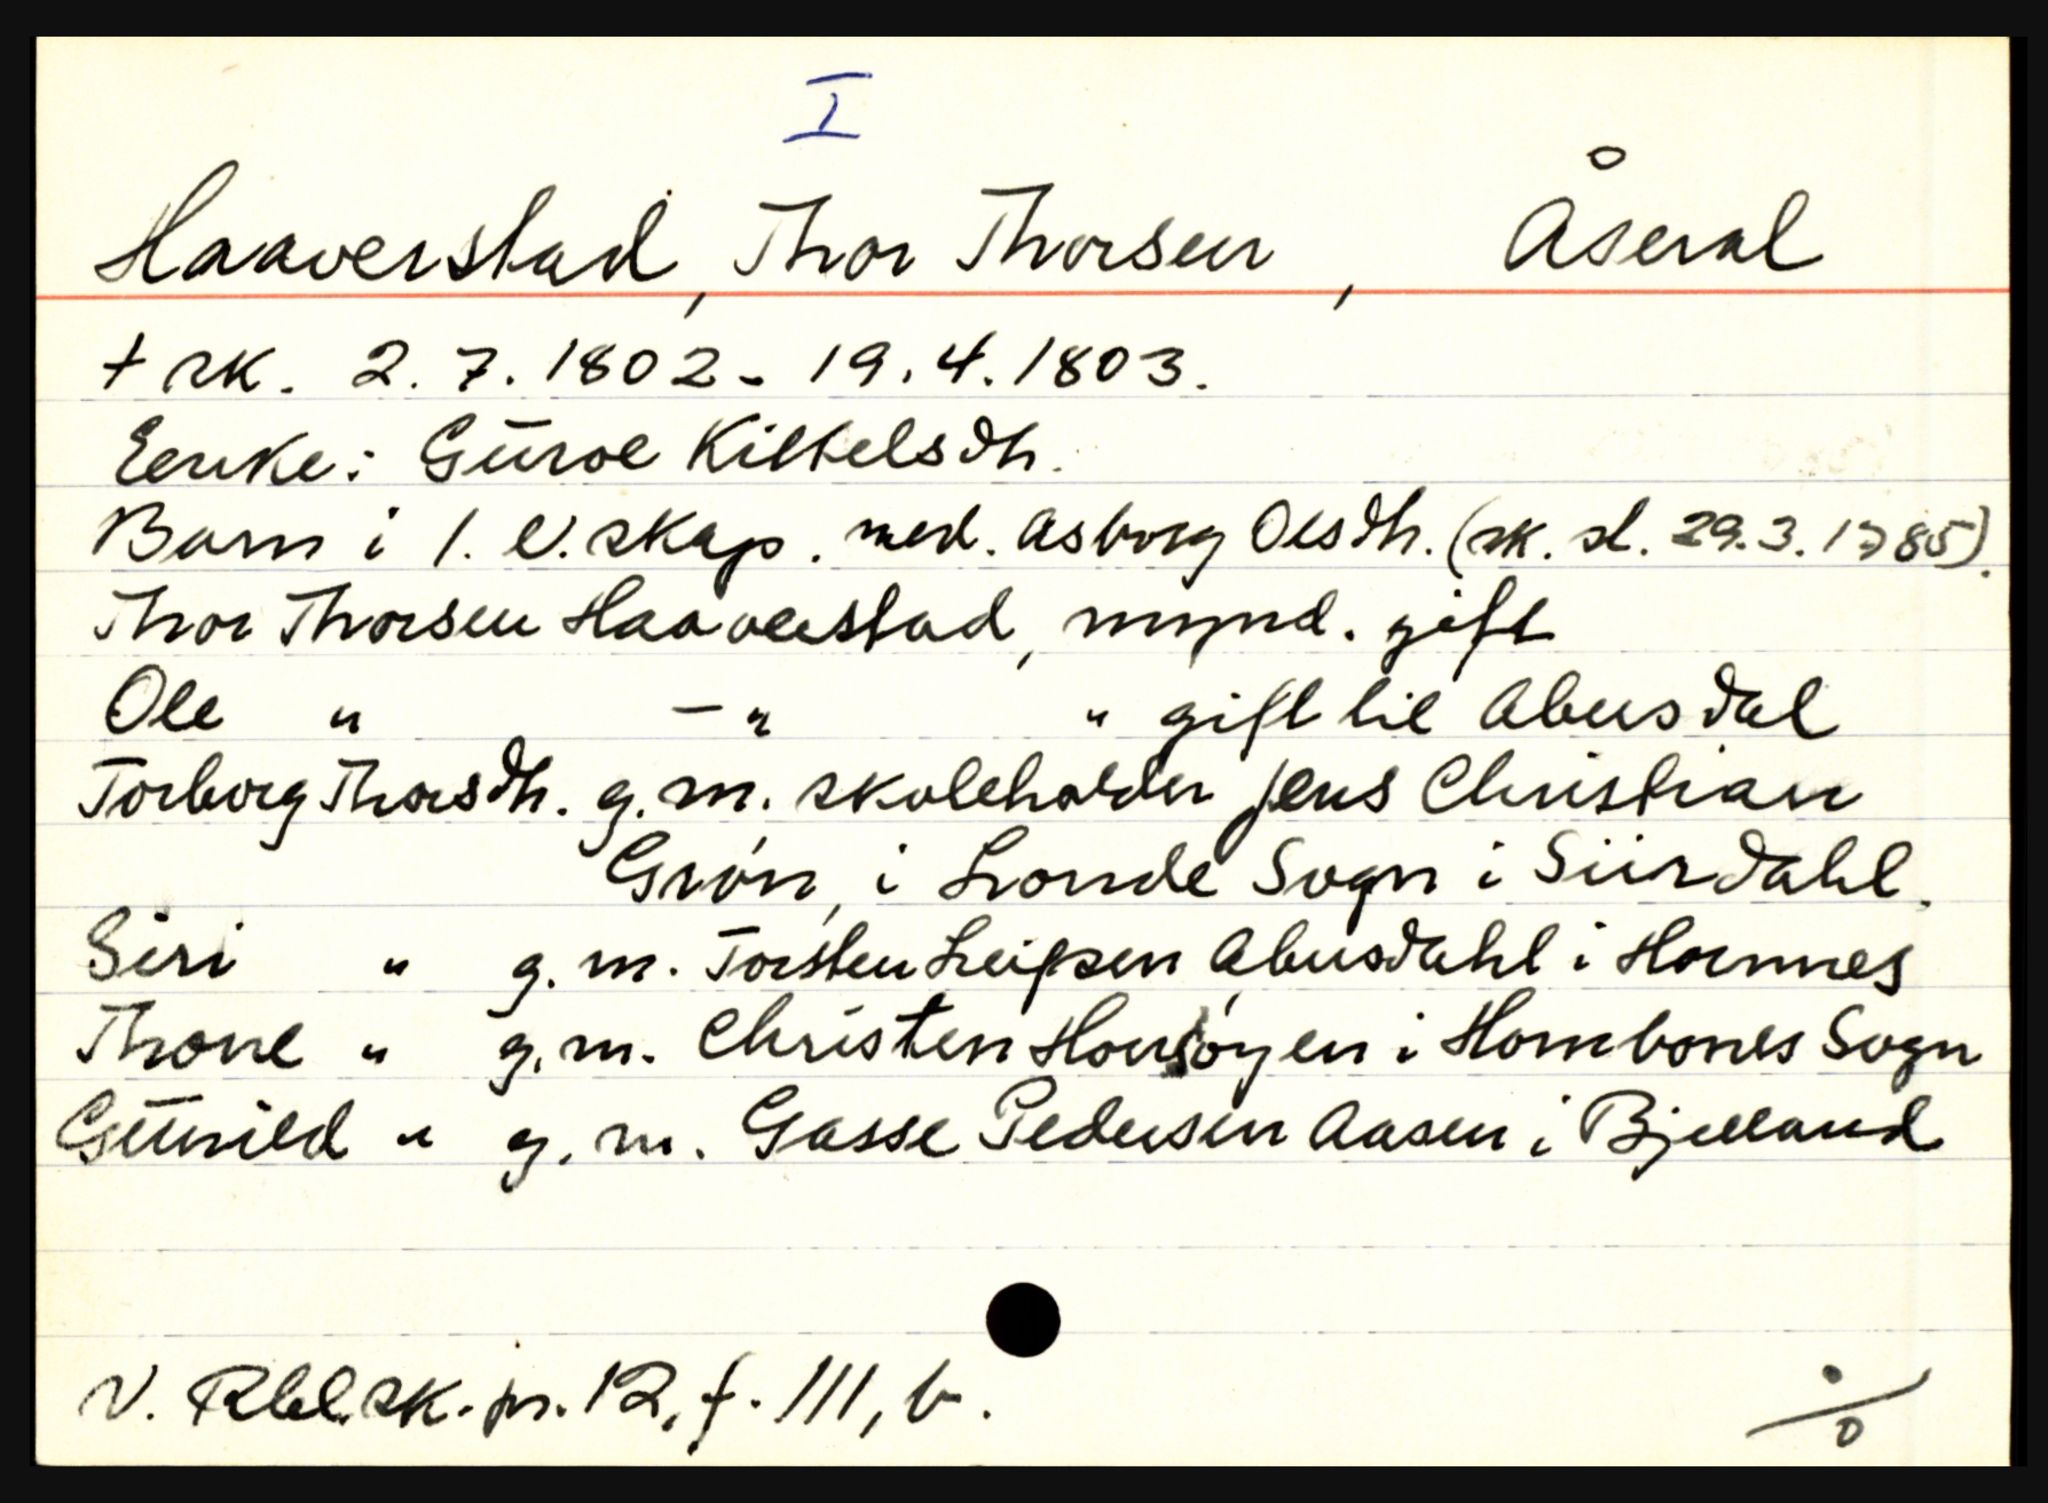 I
Haaverstad, Thor Thorsen, Åseral
+ sk. 2.7.1802 - 19.4.1803.
Enke: Guroe Kittelsdtr.
Barn i 1. e.skap. med. Asborg Olsdtr. (sk. sl. 29.3.1785).
Thor Thorsen Haaverstad, mynd. gift
Ole " — " " gift til Abusdal
Torborg Thorsdtr. g.m. skoleholder Jens Christian
Grøn, i Lunde Sogn i Siirdahl.
Siri " g.m. Torsten Leifsen Abusdahl i Hornnes
Throne " g.m. Christen Honsøyen i Hornbones Sogn
Gunild " g.m. Gasse Pedersen Aasen i Bjelland
V. Rbl. sk. pr. 12, f. 111, b.